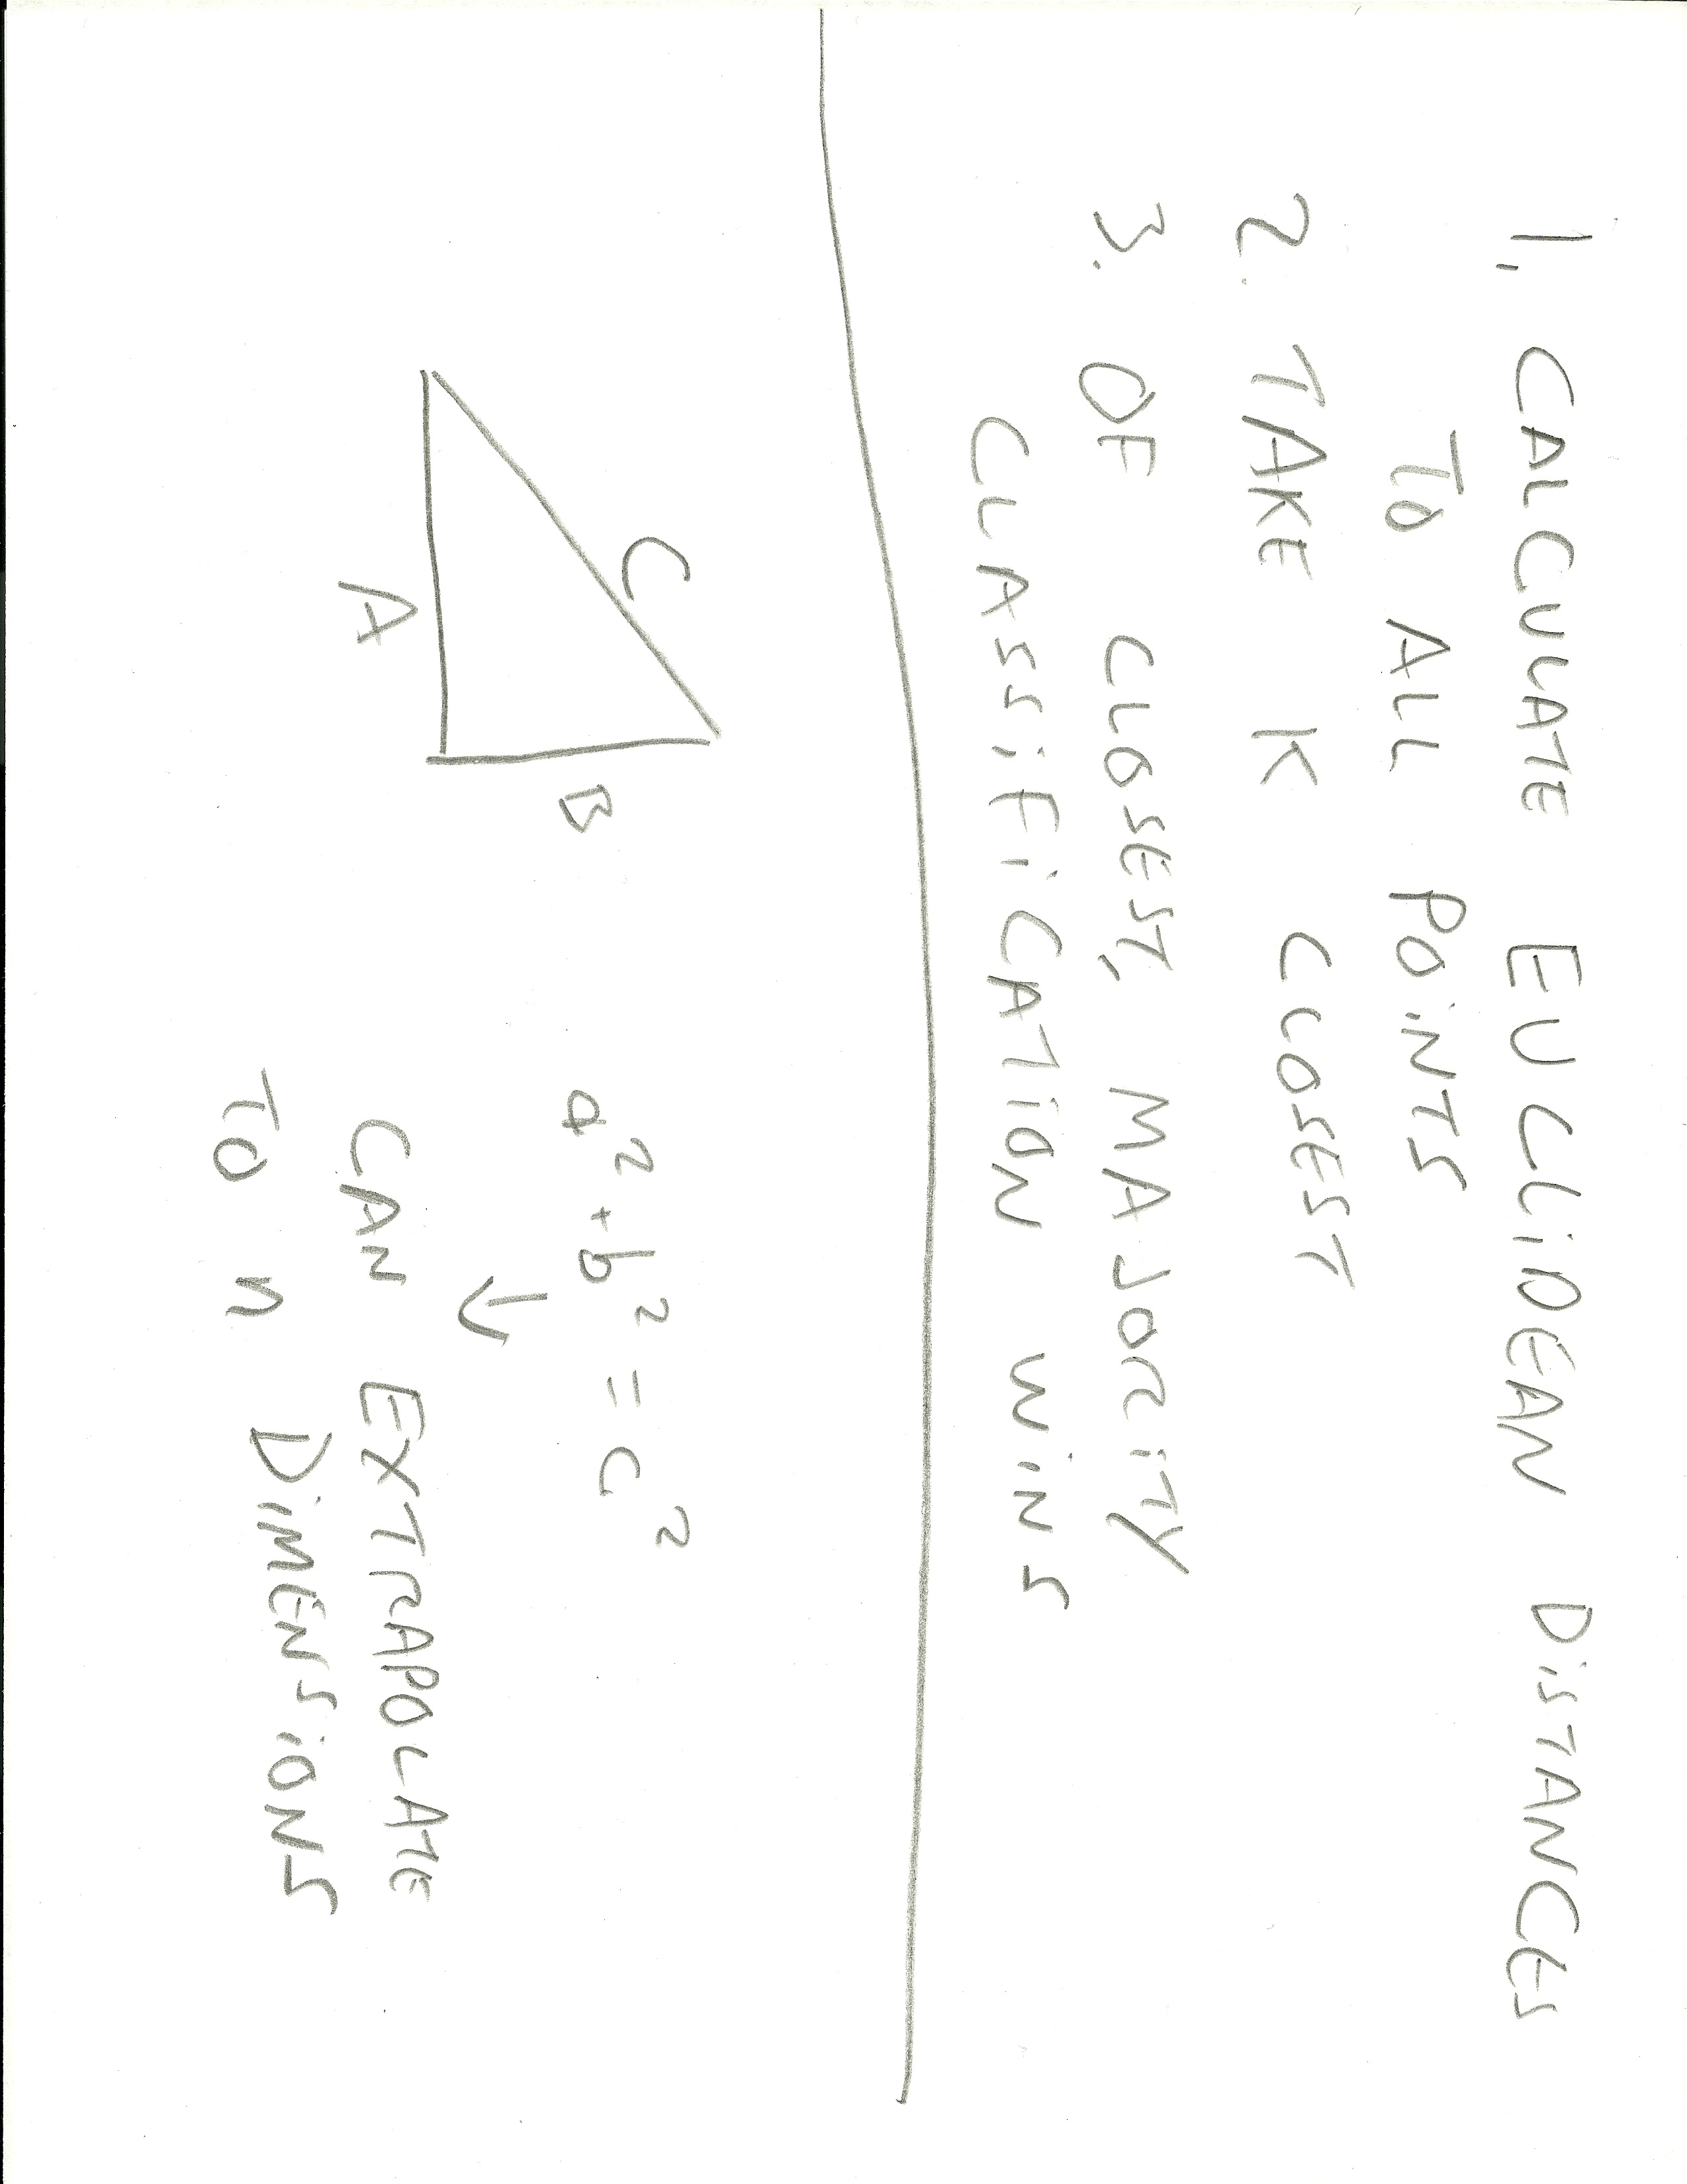 1. CALCULATE EUCLIDEAN DISTANCES
TO ALL POINTS
2. TAKE K CLOSEST
3. OF CLOSEST, MAJORITY
CLASSIFICATION WINS
C
B
A
a² + b² = c²
↓
CAN EXTRAPOLATE
TO n DIMENSIONS